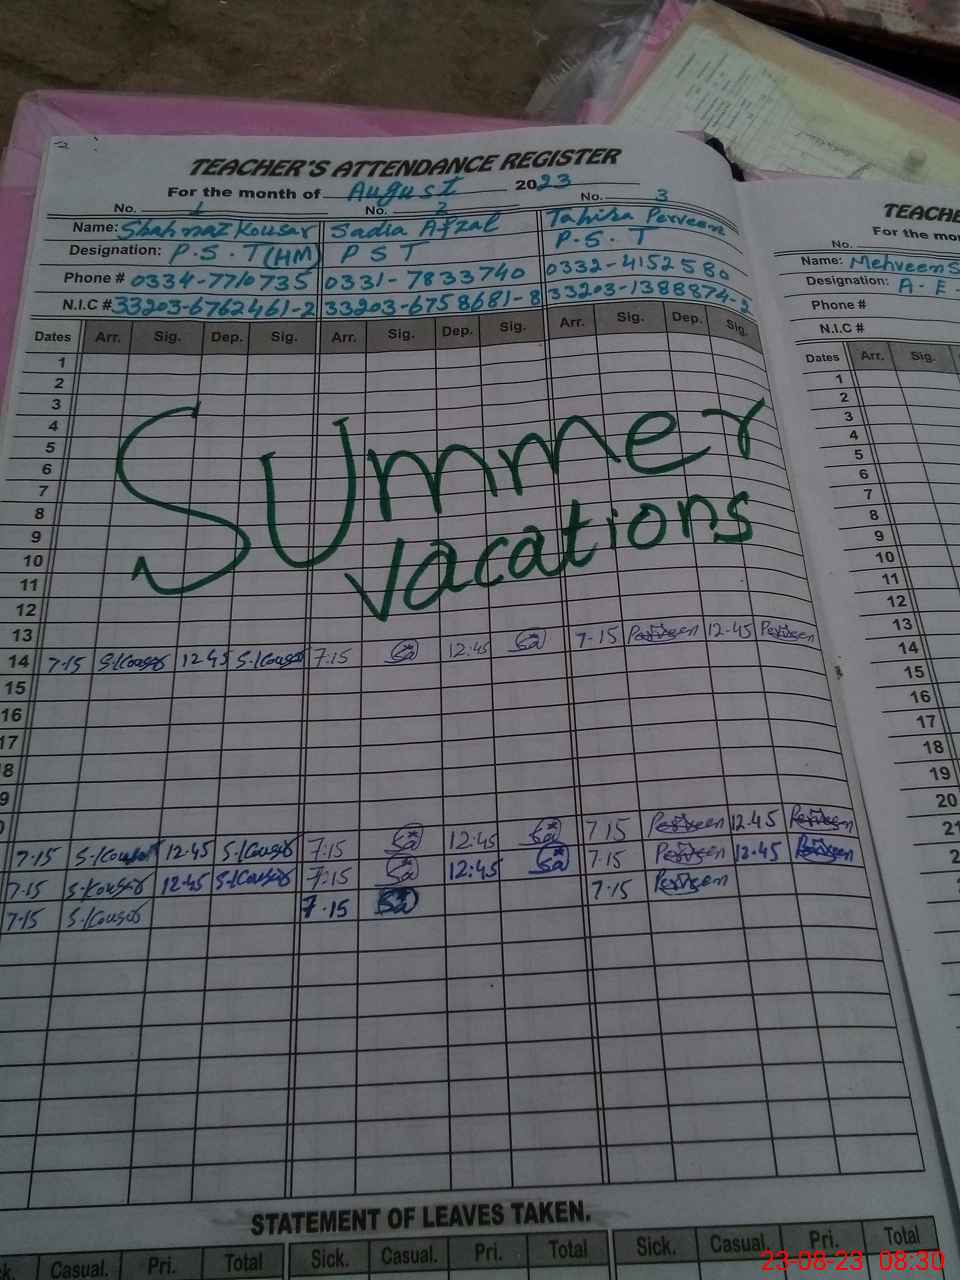 TEACHER'S ATTENDANCE REGISTER
For the month of August 2023
No. 1 No. 2 No. 3
Name: Shahnaz Kousar Sadia Afzal Tahira Perveen
Designation: P.S.T(HM) P S T P.S.T
Phone # 0334-7710735 0331-7833740 0332-4152580
N.I.C # 33203-6762461-2 33203-6758681-8 33203-1388874-2
Dates Arr. Sig. Dep. Sig. Arr. Sig. Dep. Sig. Arr. Sig. Dep. Sig.
1
2
3
4
5
6
7
8
9
10
11
12
13
Summer
vacations
14 7-15 S.Kousar 12-45 S.Kousar 7:15 Sa 12:45 Sa 7-15 Perveen 12-45 Perveen
15
16
17
8
9
7-15 S.Kousar 12-45 S.Kousar 7:15 Sa 12:45 Sa 7-15 Perveen 12-45 Perveen
7-15 S.Kousar 12-45 S.Kousar 7:15 Sa 12:45 Sa 7-15 Perveen 12-45 Perveen
7-15 S.Kousar 7.15 Sa 7-15 Perveen
STATEMENT OF LEAVES TAKEN.
k. Casual. Pri. Total Sick. Casual. Pri. Total Sick. Casual. Pri. Total
TEACHE
For the mon
No.
Name: Mehveen S
Designation: A-E-
Phone #
N.I.C #
Dates Arr. Sig.
1
2
3
4
5
6
7
8
9
10
11
12
13
14
15
16
17
18
19
20
21
2
23-08-23 08:30